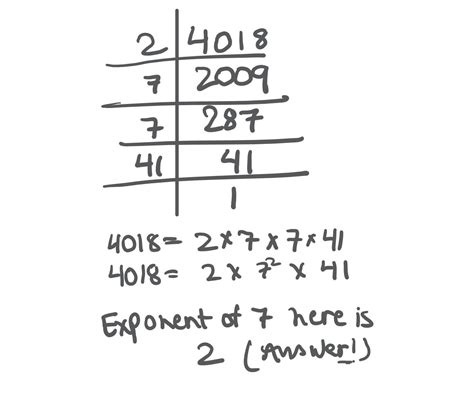 2 | 4018
7 | 2009
7 | 287
41 | 41
| 1
4018 = 2 × 7 × 7 × 41
4018 = 2 × 7² × 41
Exponent of 7 here is
2 (Answer!)